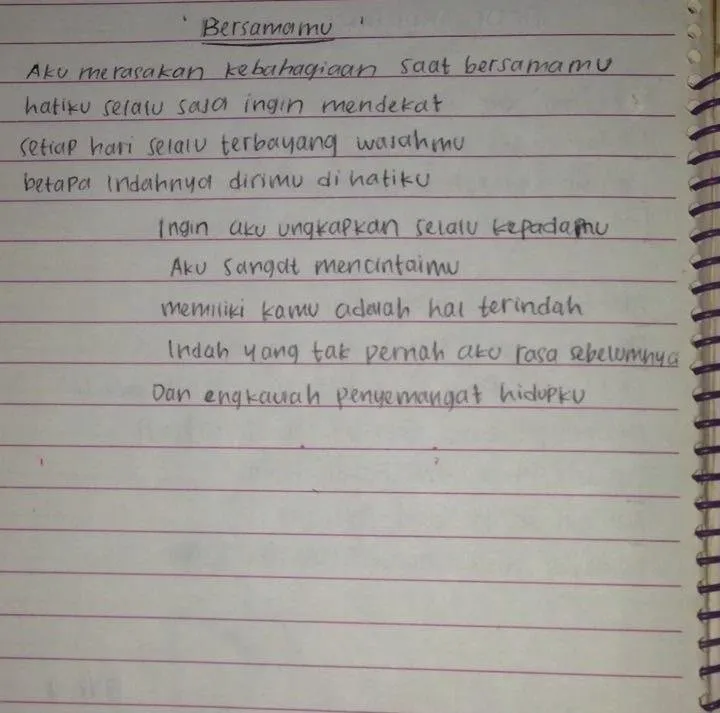 ' Bersamamu '
Aku merasakan kebahagiaan saat bersamamu
hatiku selalu saja ingin mendekat
setiap hari selalu terbayang wajahmu
betapa indahnya dirimu di hatiku
Ingin aku ungkapkan selalu kepadamu
Aku sangat mencintaimu
memiliki kamu adalah hal terindah
Indah yang tak pernah aku rasa sebelumnya
Dan engkaulah penyemangat hidupku